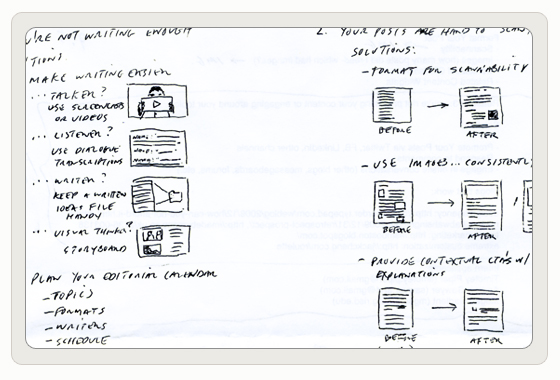 U'RE NOT WRITING ENOUGH
TIONS:
MAKE WRITING EASIER
... TALKER?
USE SCREENCASTS
OR VIDEOS
... LISTENER?
USE DIALOGUE
TRANSCRIPTIONS
... WRITER?
KEEP A WRITTEN
IDEAS FILE
HANDY
... VISUAL THINKER?
STORYBOARD
PLAN YOUR EDITORIAL CALENDAR
- TOPICS
- FORMATS
- WRITERS
- SCHEDULE
2. YOUR POSTS ARE HARD TO SCAN
SOLUTIONS:
- FORMAT FOR SCANNABILITY
BEFORE
AFTER
- USE IMAGES... CONSISTENTLY
BEFORE
AFTER
- PROVIDE CONTEXTUAL CTA'S W/
EXPLANATIONS
BEFORE
AFTER